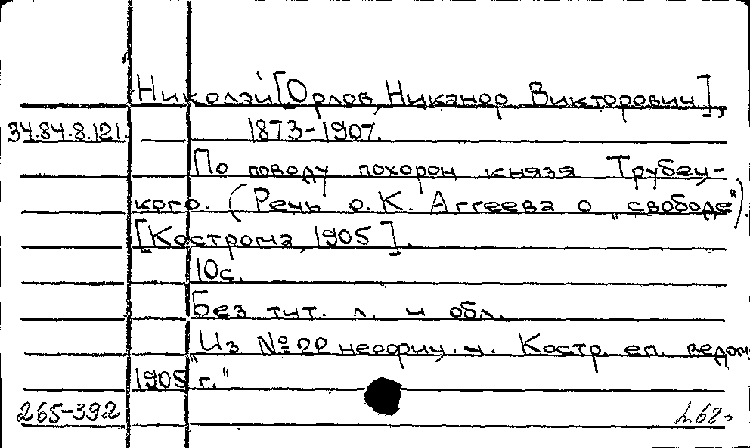 Николай [Орлов, Никанор Викторович],
34.84.8.121. 1873-1907.
По поводу похорон князя Трубец-
кого. (Речь о. К. Аггеева о „свободе“)
[Кострома, 1905].
10с.
Без тит. л. и обл.
"Из № 22 неофиц. ч. Костр. еп. ведом
1905 г."
265-392